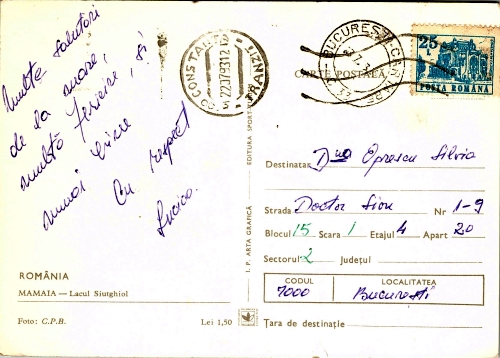 Multe salutări
de la mare,
multă fericire, și
numai bine
Cu respect
Lucica.
ROMÂNIA
MAMAIA — Lacul Siutghiol
Foto: C.P.B.
Lei 1,50
I. P. ARTA GRAFICĂ
EDITURA SPORT
CONSTANȚA
22.07.93
TRANZIT
BUCUREȘTI
CARTE POSTALĂ
25 L
POSTA ROMÂNA
Destinatar Dna Oprescu Silvia
Strada Doctor Sion Nr 1-9
Blocul 15 Scara 1 Etajul 4 Apart 20
Sectorul 2 Județul
CODUL LOCALITATEA
7000 București
Țara de destinație